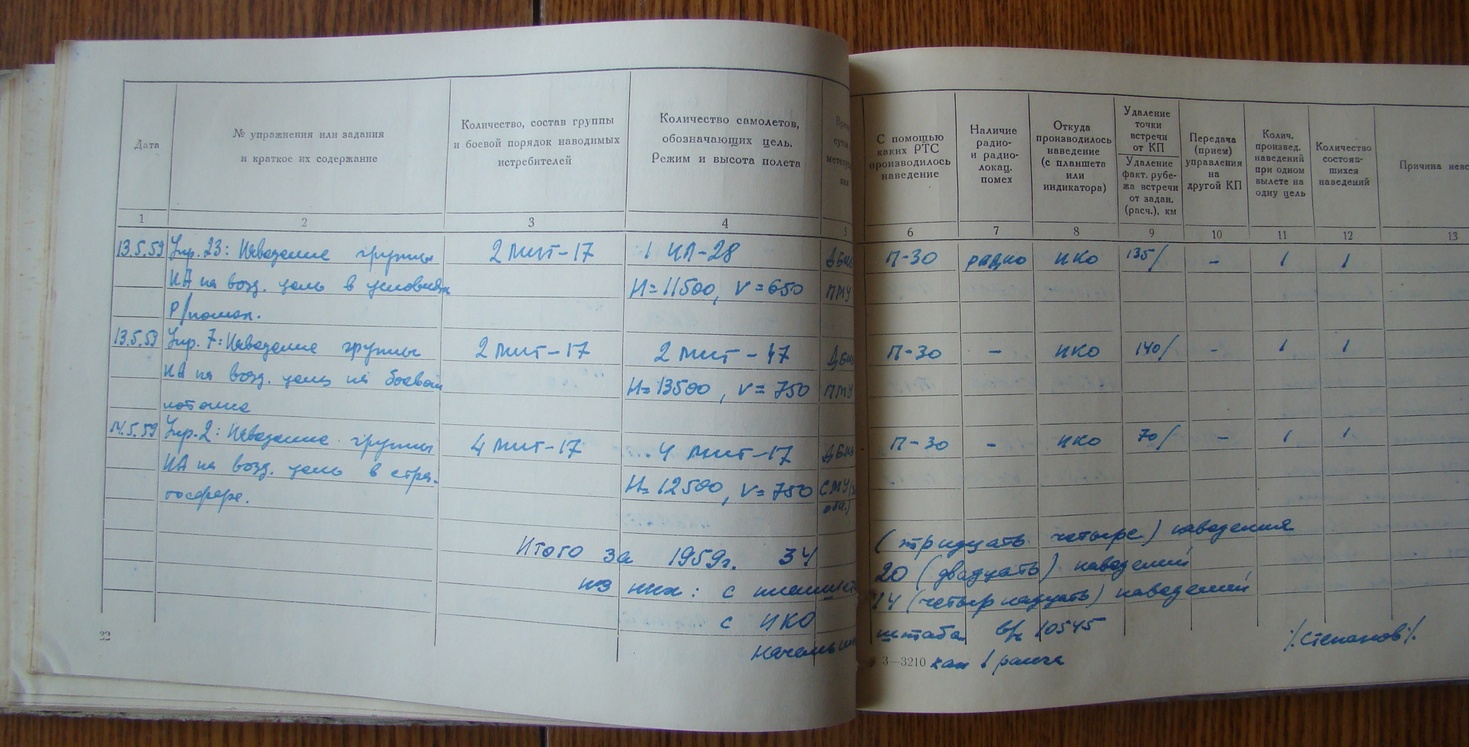 Дата
№ упражнения или задания
и краткое их содержание
Количество, состав группы
и боевой порядок наводимых
истребителей
Количество самолетов,
обозначающих цель.
Режим и высота полета
С помощью
каких РТС
производилось
наведение
Наличие
радио-
и радио-
локац.
помех
Откуда
производилось
наведение
(с планшета
или
индикатора)
Удаление
точки
встречи
от КП
Удаление
факт. рубе-
жа встречи
от задан.
(расч.), км
Передача
(прием)
управления
на
другой КП
Колич.
произвед.
наведений
при одном
вылете на
одну цель
Количество
состояв-
шихся
наведений
Причина
1 2 3 4 5 6 7 8 9 10 11 12 13
13.5.59 Упр. 23: Наведение группы 2 МИГ-17 1 ИЛ-28 П-30 радио ИКО 135/ - 1 1
ИА на возд. цель в условиях Н=11500, V=650 ПМУ
Р/помех.
13.5.59 Упр. 7: Наведение группы 2 МИГ-17 2 МИГ-17 П-30 - ИКО 140/ - 1 1
ИА на возд. цель на боевой Н=13500, V=750 ПМУ
потолке
14.5.59 Упр. 2: Наведение группы 4 МИГ-17 4 МИГ-17 П-30 - ИКО 70/ - 1 1
ИА на возд. цель в стра- Н=12500, V=750 СМУ
тосфере.
Итого за 1959г. 34 (тридцать четыре) наведения
из них: с 20 (двадцать) наведений
с ИКО 14 (четырнадцать) наведений
штаба в/ч 10545
22 3—3210 кап 1 ранга /Степанов/.